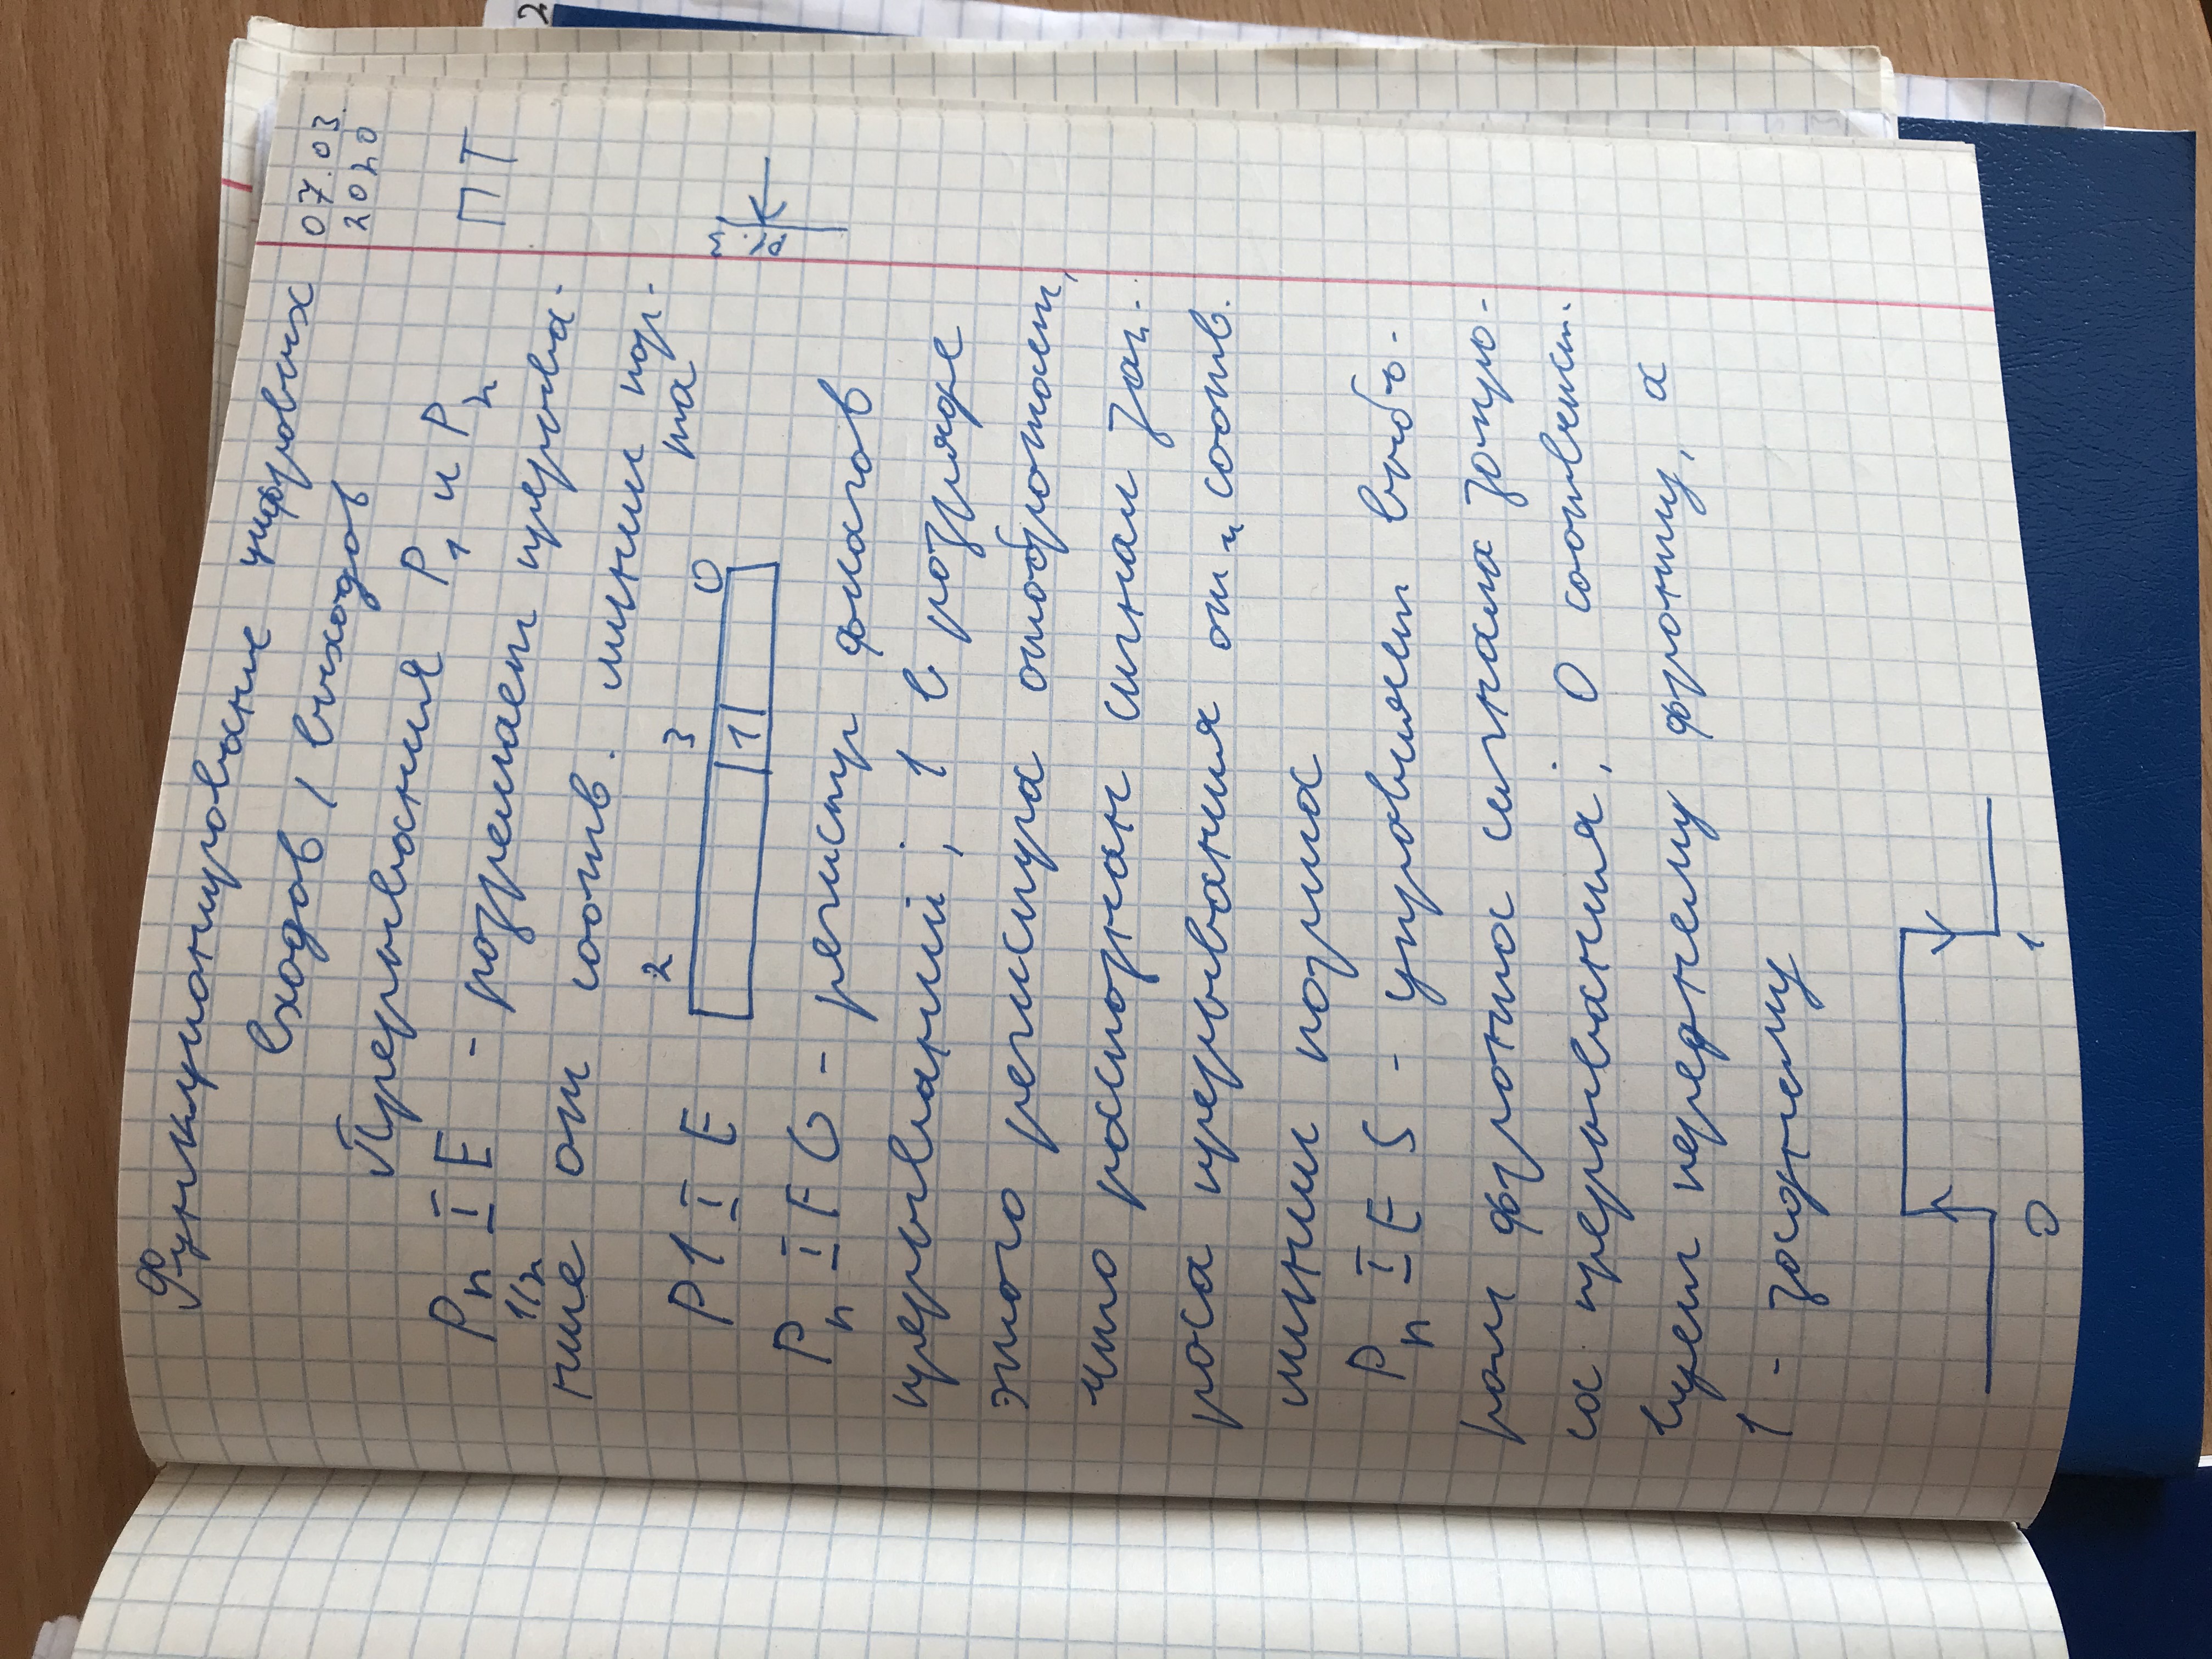 Функционирование цифровых
входов / выходов
07.03.
2020
Прерывания P1 и P2
ПТ
Pn IE - разрешает прерыва-
1/2
ние от соотв. линии пор-
та
P1 IE
2 3 0
1
P1.3
Pn IFG - регистр флагов
прерываний; 1 в разряде
этого регистра отображает,
что распознан сигнал зап-
роса прерывания от соотв.
линии порта
Pn IES - управляет выбо-
ром фронта сигнала запро-
са прерывания; 0 соответст-
вует переднему фронту, а
1 - заднему
0 1
2